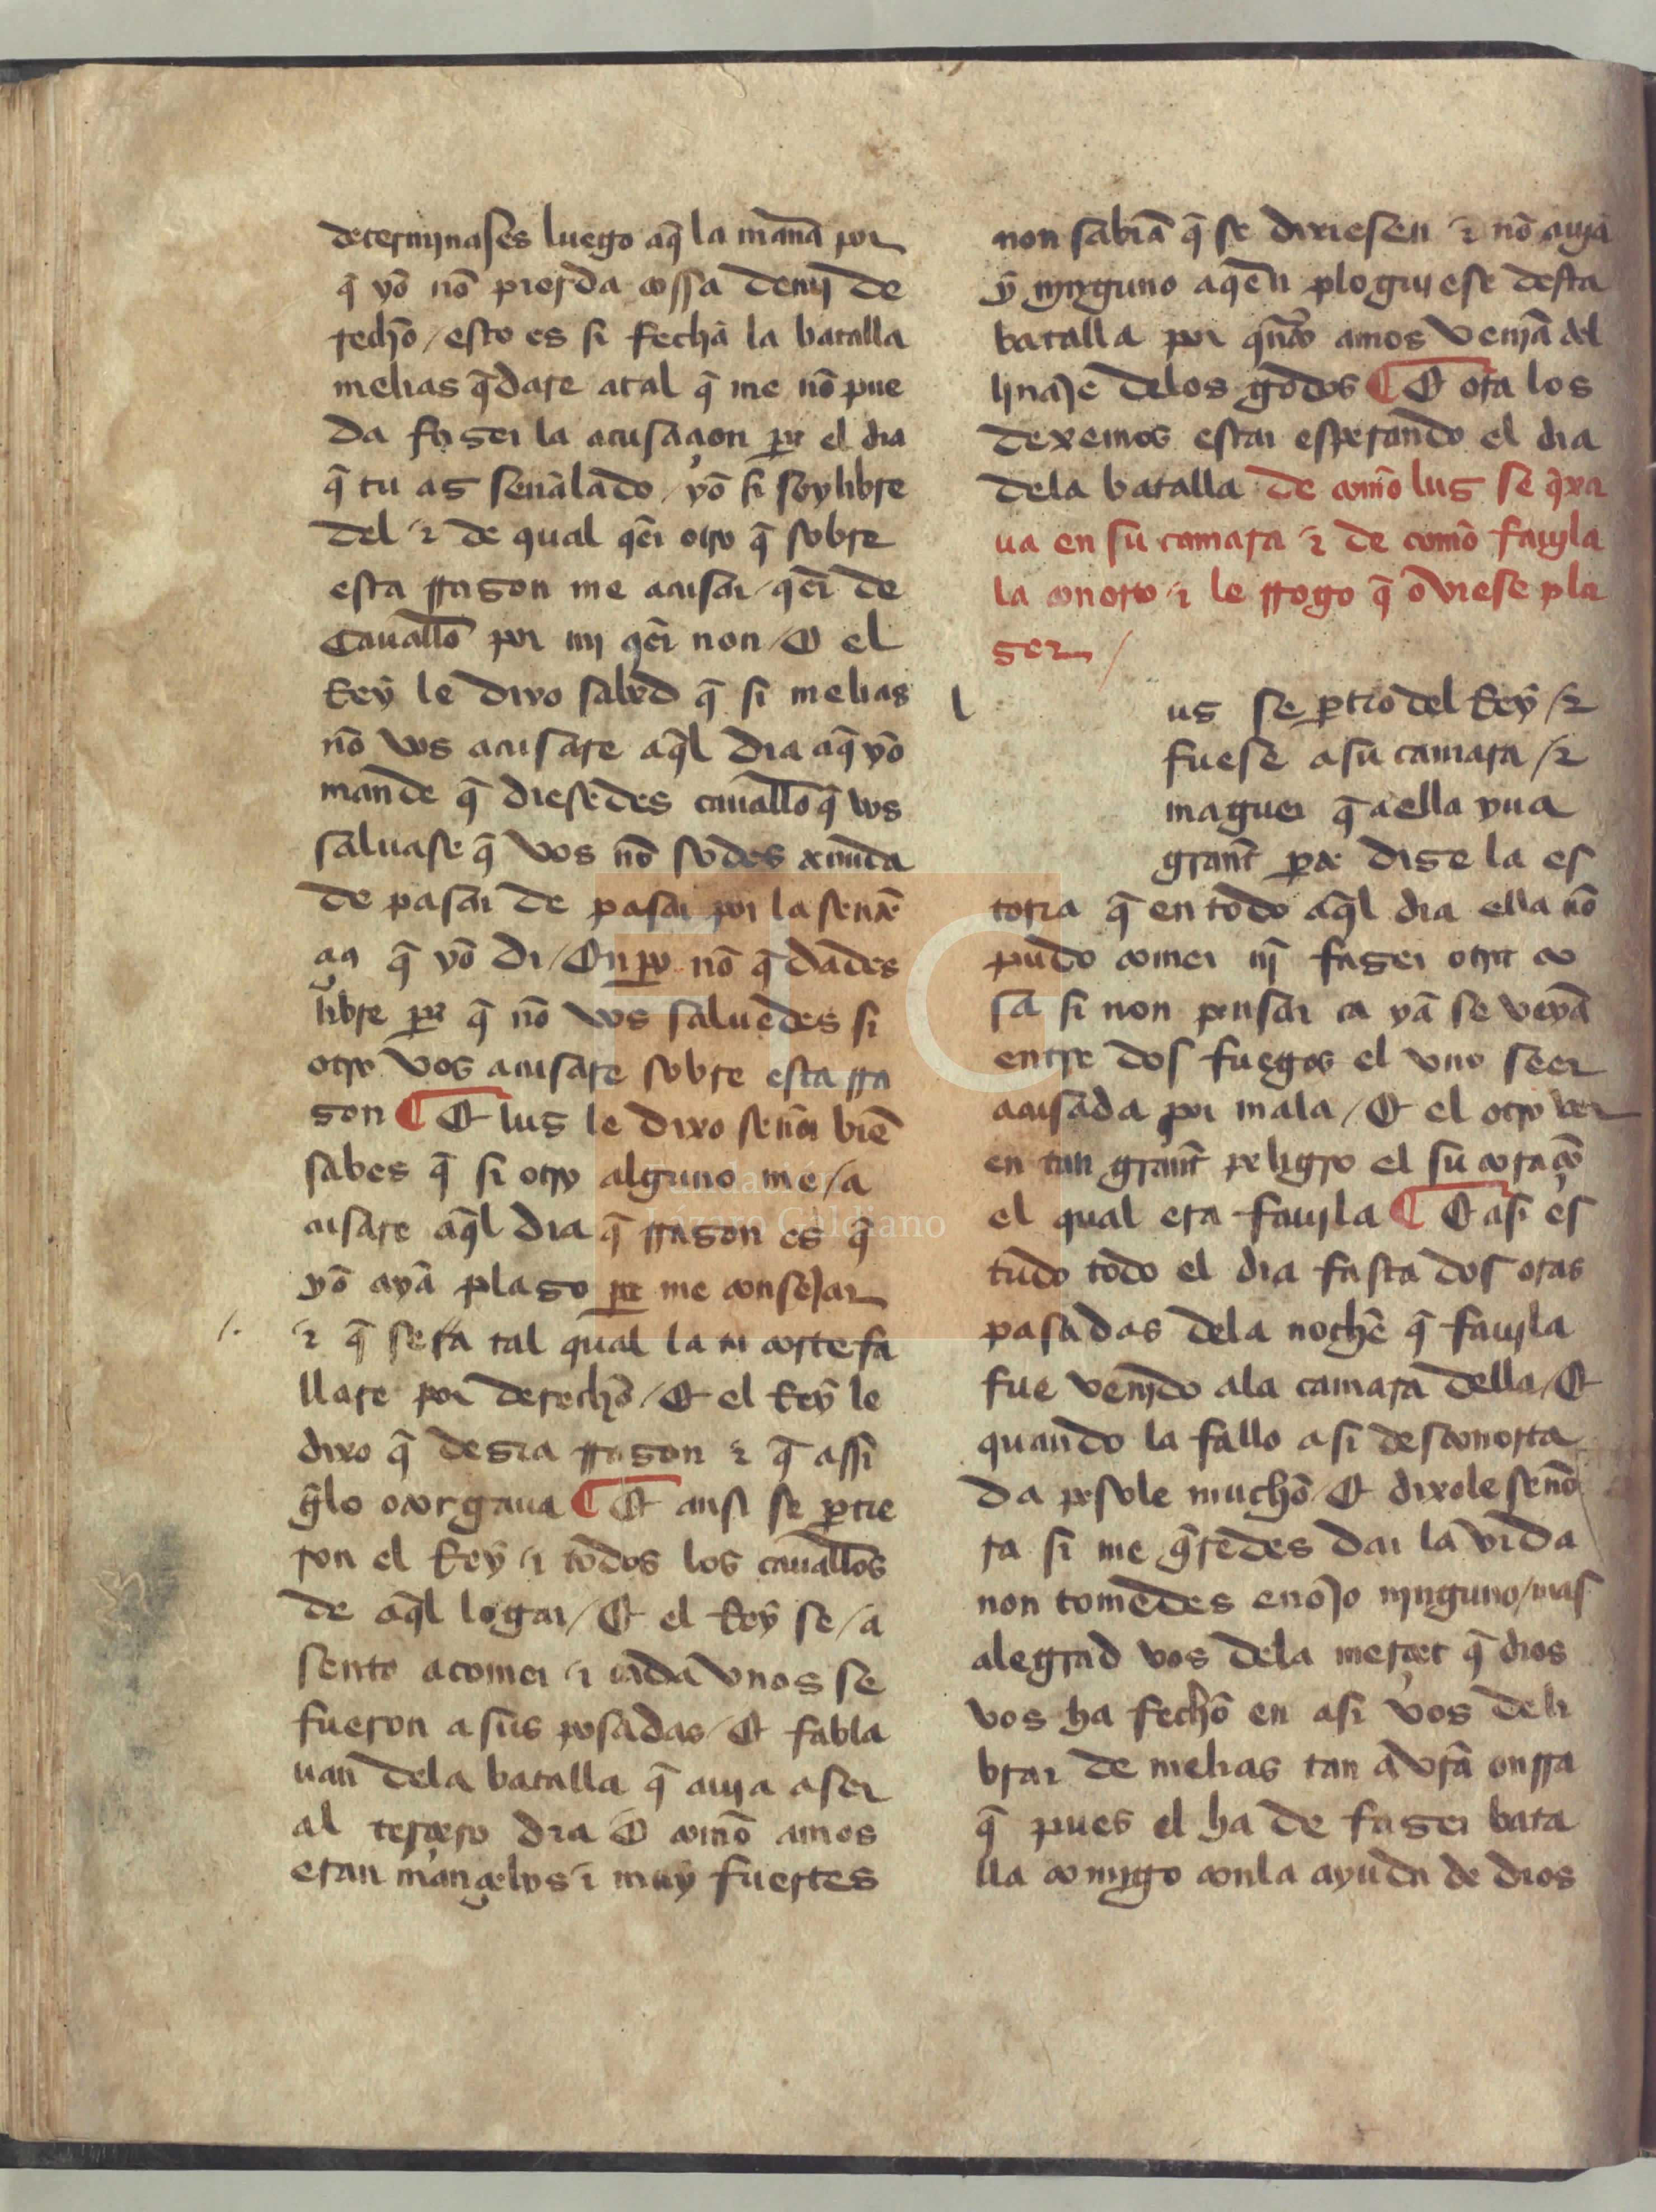 determjnases luego aq̃lla mañana por
q̃ yo nõ pierda cossa demj de
recho / esto es si fecha la batalla
melias q̃dare atal q̃ me nõ pue
da faser la acusaçion para el dia
q̃ tu as señalado / yo si soy libre
del ⁊ de qual q̃r otro q̃ sobre
esta rrason me acusar / q̃r de
Cauallo por mj q̃r non / E el
Rey le dixo sabed q̃ si melias
nõ vos acusare aq̃l dia aq̃ yo
mande q̃ diesedes cauallo q̃ vos
saluase q̃ vos nõ sodes tenuda
de pasar de pasar por la senten
çia q̃ yo di / Enpero nõ q̃dades
libre para q̃ nõ vos saluedes si
otro vos acusare sobre esta rra
son ¶ Et lus le dixo señor biẽ
sabes q̃ si otro alguno me / a
cusare aq̃l dia q̃ rrason es q̃
yo aya plaso para me consejar
⁊ q̃ sera tal qual la tu corte fa
llare por derecho / Et el Rey le
dixo q̃ desia rrason ⁊ q̃ assi
g̃lo otorgaua ¶ Et ansi se partie
ron el Rey ⁊ todos los cauallos
de aq̃l logar / Et el Rey se / a
sento acomer ⁊ cada vnos se
fueron a sus posadas / Et fabla
uan dela batalla q̃ auja aser
al terçero dia E como amos
eran mançebos ⁊ muy fuertes
non sabiã q̃ se dixiesen ⁊ nõ aujã
y njnguno aquen ploguiese desta
batalla por quãto amos venjã del
linaje delos godos ¶ E ora los
dexemos estar esperando el dia
dela batalla de como lus se q̃xa
ua en su camara ⁊ de como fauila
la conorto ⁊ le rrogo q̃ oviese pla
ser /
l us se partio del Rey / ⁊
fuese asu camara / ⁊
maguer q̃ aella yua
grant pero dise la es
toria q̃ en todo aq̃l dia ella nõ
pudo comer nj̃ faser otra co
sa si non pensar ca ya se veya
entre dos fuegos el vno seer
acusada por mala / Et el otro ver
en tan grant peligro el su coraçõ
el qual era fauila ¶ E asi es
tudo todo el dia fasta dos oras
pasadas dela noche q̃ fauila
fue venjdo ala camara della / Et
quando la fallo asi desconorta
da pesole mucho / Et dixole seño
ra si me q̃redes dar la vida
non tomedes enojo njnguno / mas
alegrad vos dela merçet q̃ dios
vos ha fecho en asi vos deli
brar de melias tan a vr̃a onrra
q̃ pues el ha de faser bata
lla comigo conla ayuda de dios
Lázaro Galdiano